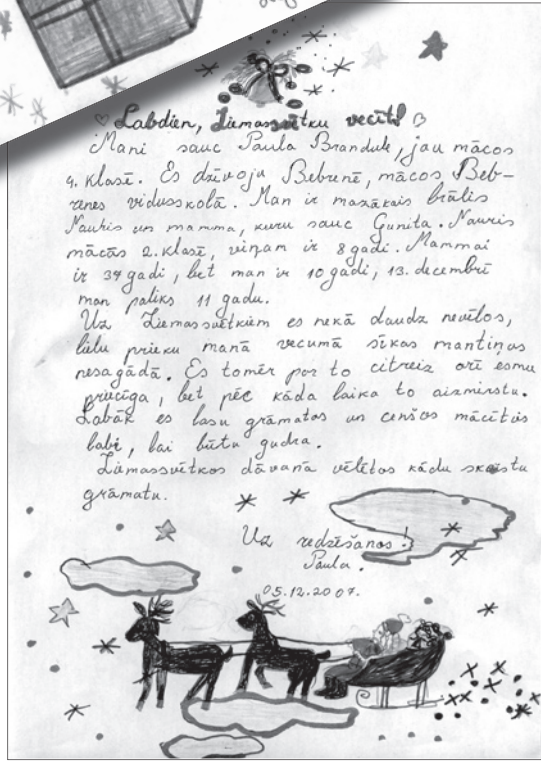 ♡ Labdien, Ziemassvētku vecīt! ♡
Mani sauc Paula Brandule, jau mācos
4. klasē. Es dzīvoju Bebrenē, mācos Beb-
renes vidusskolā. Man ir mazākais brālis
Nauris un mamma, kuru sauc Gunita. Nauris
mācās 2. klasē, viņam ir 8 gadi. Mammai
ir 34 gadi, bet man ir 10 gadi, 13. decembrī
man paliks 11 gadu.
Uz Ziemassvētkiem es nekā daudz nevēlos,
lielu prieku manā vecumā sīkas mantiņas
nesagādā. Es tomēr par to citreiz arī esmu
priecīga, bet pēc kāda laika to aizmirstu.
Labāk es lasu grāmatas un cenšos mācīties
labi, lai būtu gudra.
Ziemassvētkos dāvanā vēlētos kādu skaistu
grāmatu.
Uz redzēšanos!
Paula.
05.12.2007.